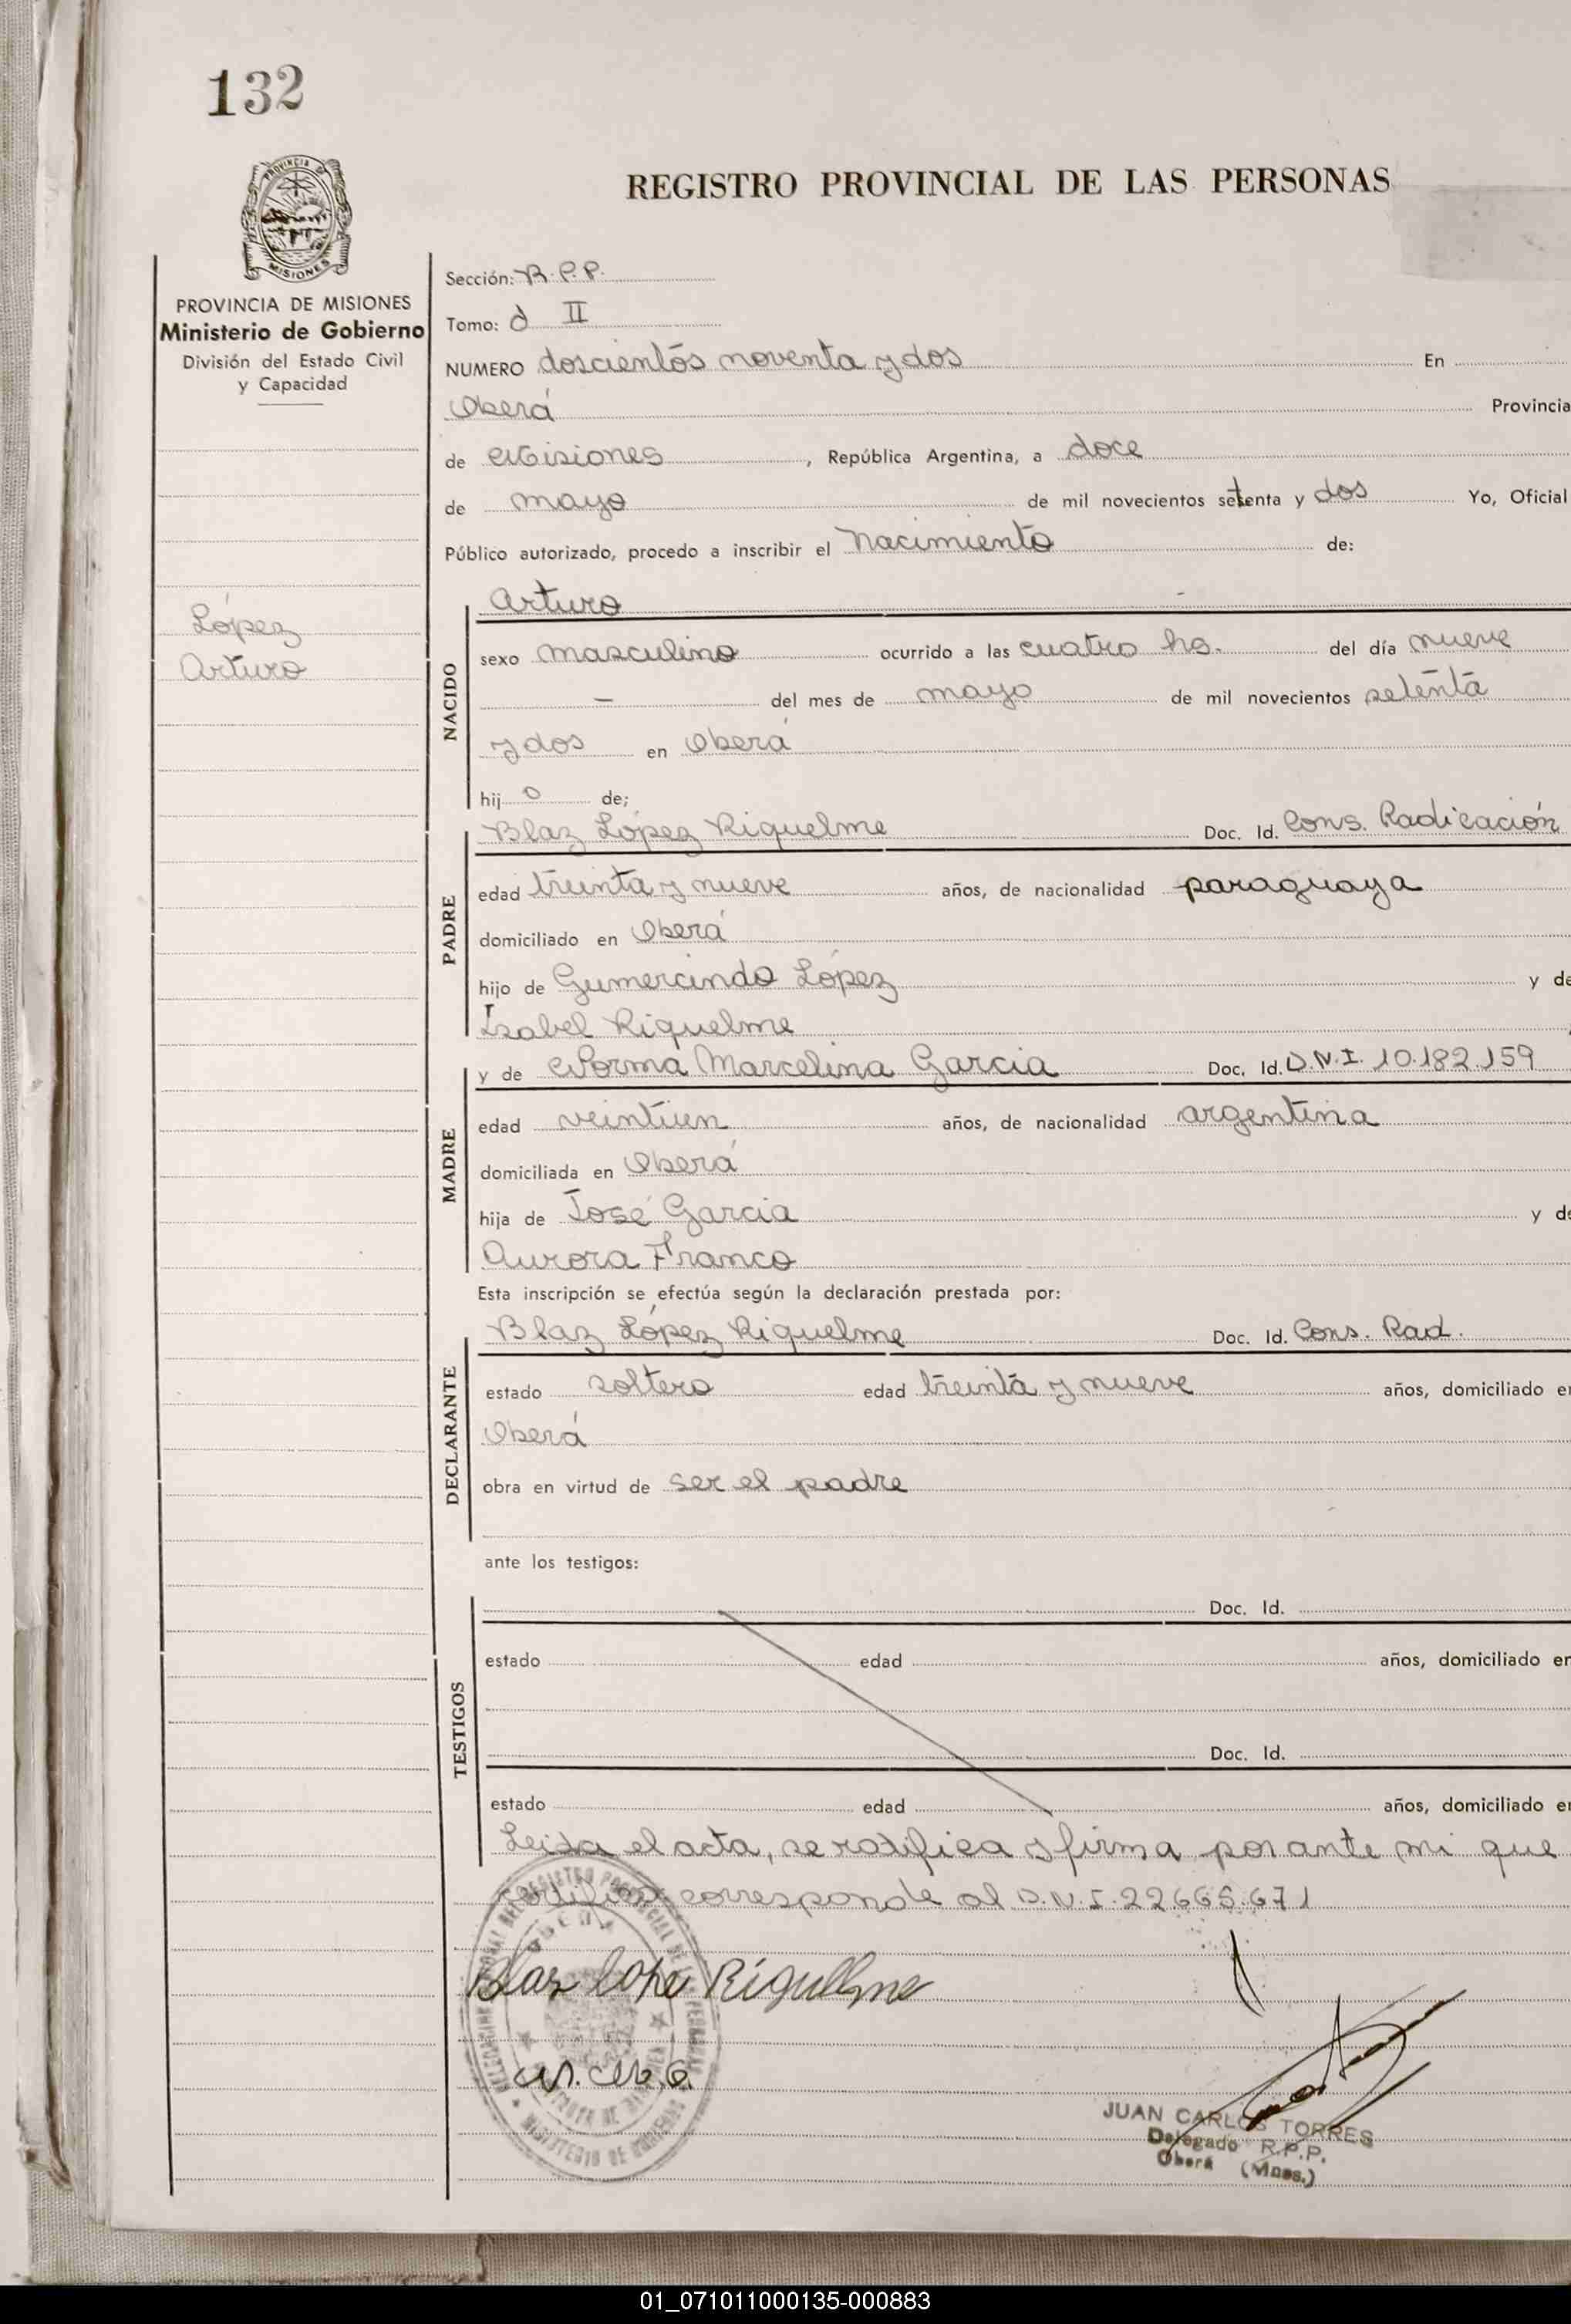 132
PROVINCIA DE
MISIONES
REGISTRO PROVINCIAL DE LAS PERSONAS
PROVINCIA DE MISIONES
Ministerio de Gobierno
División del Estado Civil
y Capacidad
López
Arturo
Sección: R.P.P.
Tomo: II
NUMERO doscientos noventa y dos En
Oberá Provincia
de Misiones, República Argentina, a doce
de mayo de mil novecientos setenta y dos Yo, Oficial
Público autorizado, procedo a inscribir el nacimiento de:
NACIDO
Arturo
sexo masculino ocurrido a las cuatro hs. del día nueve
— del mes de mayo de mil novecientos setenta
y dos en Oberá
hijo de;
PADRE
Blaz López Riquelme Doc. Id. Cons. Radicación
edad treinta y nueve años, de nacionalidad paraguaya
domiciliado en Oberá
hijo de Gumercindo López y de
Isabel Riquelme
MADRE
y de Norma Marcelina Garcia Doc. Id. D.N.I. 10.182.159
edad veintiun años, de nacionalidad argentina
domiciliada en Oberá
hija de José Garcia y de
Aurora Franco
Esta inscripción se efectúa según la declaración prestada por:
DECLARANTE
Blaz López Riquelme Doc. Id. Cons. Rad.
estado soltero edad treinta y nueve años, domiciliado en
Oberá
obra en virtud de ser el padre
ante los testigos:
TESTIGOS
Doc. Id.
estado edad años, domiciliado en
Doc. Id.
estado edad años, domiciliado en
Leída el acta, se ratifica y firma por ante mi que
certifico corresponde al D.N.I. 22.665.671
Blaz Lope Riquelme
JUAN CARLOS TORRES
Delegado R.P.P.
Oberá (Mnes.)
01_071011000135-000883